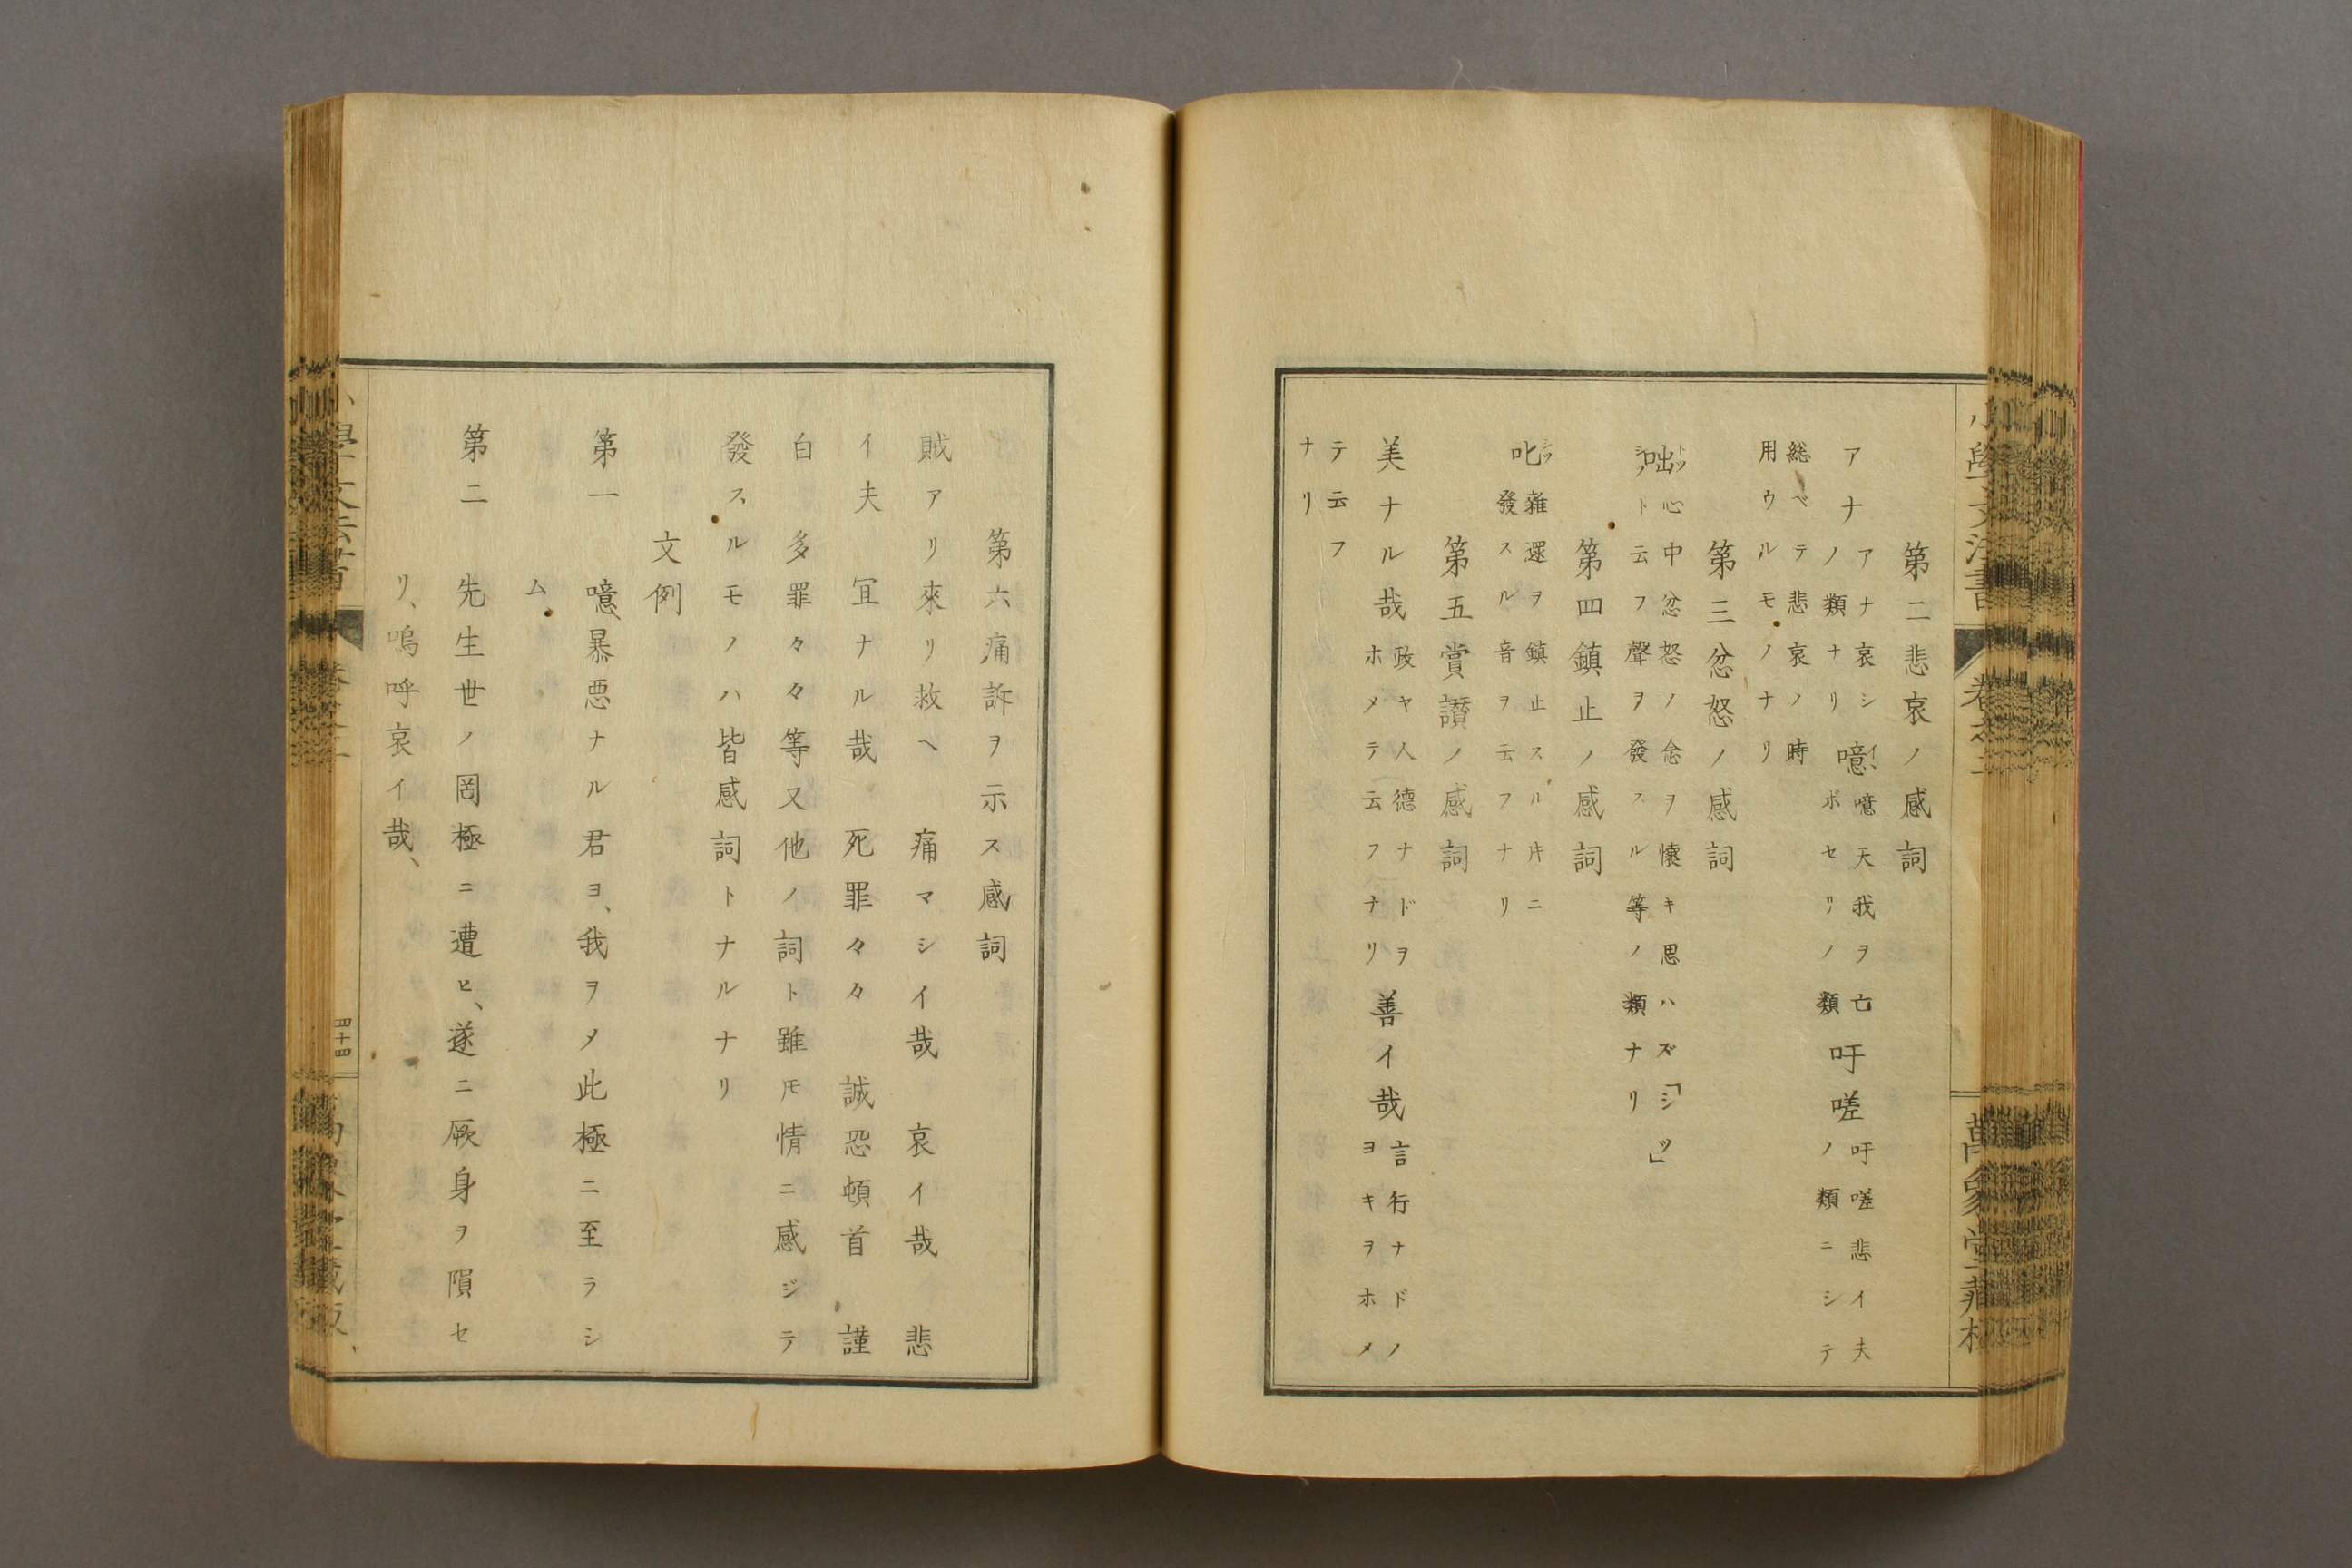 第二悲哀ノ感詞
アナ アナ哀シノ類ナリ 噫 噫天我ヲ亡ボセリノ類 吁嗟 吁嗟悲イ夫ノ類ニシテ
総ベテ悲哀ノ時用ウルモノナリ
第三忿怒ノ感詞
咄 心中忿怒ノ念ヲ懷キ思ハズ「シツ」ト云フ聲ヲ發スル等ノ類ナリ
第四鎮止ノ感詞
叱 雜還ヲ鎮止スル片ニ發スル音ヲ云フナリ
第五賞讃ノ感詞
美ナル哉 政ヤ人德ナドヲホメテ云フナリ 善イ哉 言行ナドノヨキヲホメ
テ云フナリ
小學文法書 卷之二
萬象堂藏板
第六痛訴ヲ示ス感詞
賊アリ來リ救ヘ 痛マシイ哉 哀イ哉 悲
イ夫 冝ナル哉 死罪々々 誠恐頓首 謹
白 多罪々々等又他ノ詞ト雖𪜈情ニ感ジテ
發スルモノハ皆感詞トナルナリ
文例
第一 噫、暴惡ナル君ヨ、我ヲメ此極ニ至ラシ
ム
第二 先生世ノ罔極ニ遭ヒ、遂ニ厥身ヲ隕セ
リ、嗚呼哀イ哉、
四十四